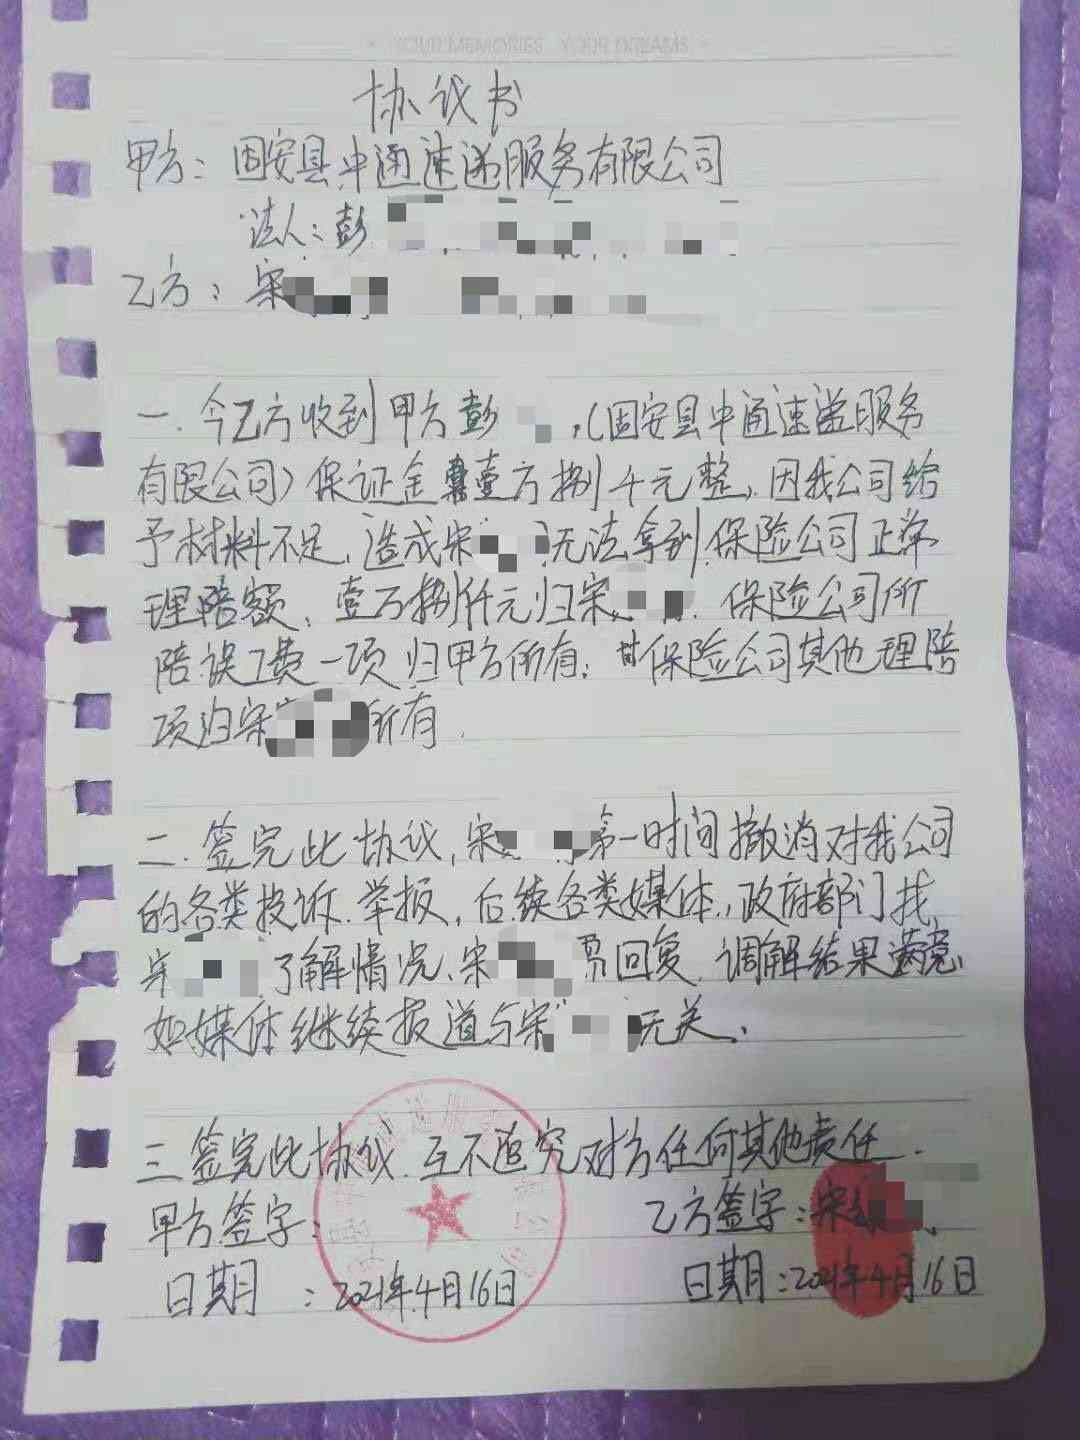 YOUR MEMORIES YOUR DREAMS
协议书
甲方：固安县中通速递服务有限公司
法人：彭
乙方：宋
一.今乙方收到甲方彭，(固安县中通速递服务
有限公司)保证金壹万捌千元整，因我公司给
予材料不足，造成宋无法拿到保险公司正常
理陪额，壹万捌仟元归宋.保险公司所
陪误工费一项归甲方所有；保险公司其他理陪
项归宋所有.
二.签完此协议，宋第一时间撤消对我公司
的各类投诉.举报，后续各类媒体，政府部门找
宋了解情况、宋回复.调解结果满意、
如媒体继续报道与宋无关.
三签完此协议.互不追究对方任何其他责任.
甲方签字：
乙方签字：宋
日期：2021年4月16日
日期：2021年4月16日